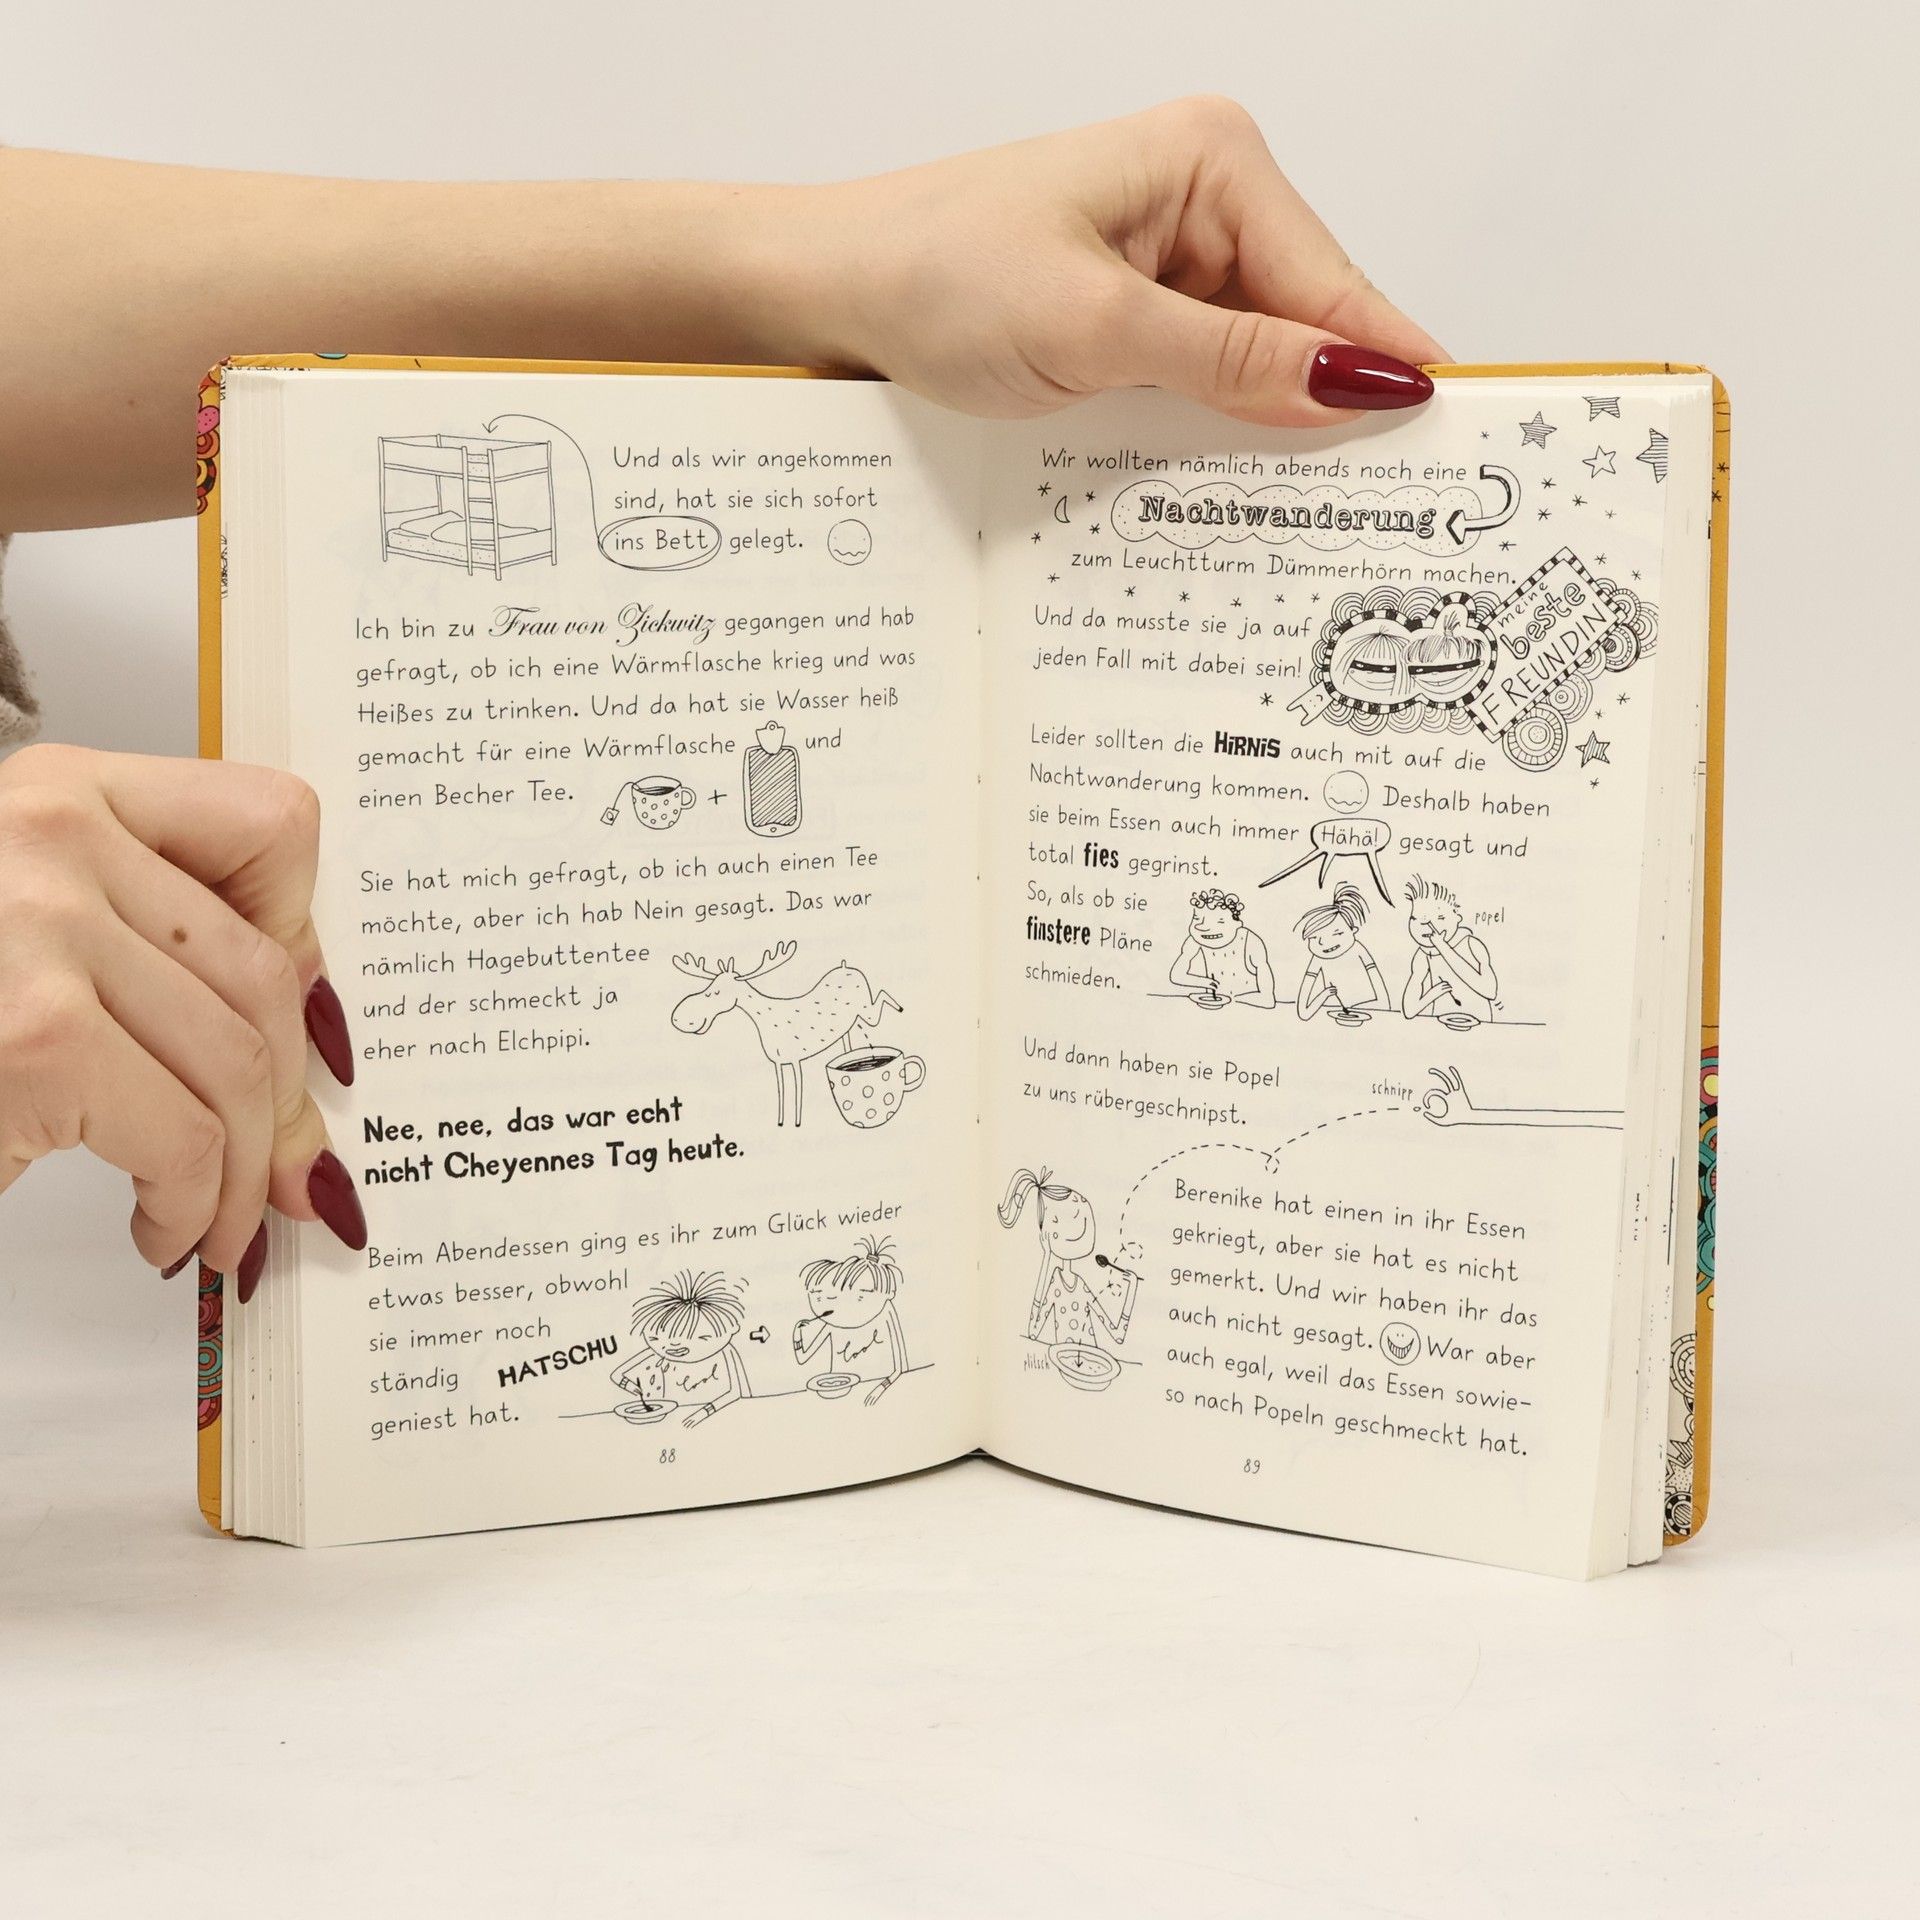 Und als wir angekommen
sind, hat sie sich sofort
ins Bett gelegt.
Ich bin zu Frau von Zickwitz gegangen und hab
gefragt, ob ich eine Wärmflasche krieg und was
Heißes zu trinken. Und da hat sie Wasser heiß
gemacht für eine Wärmflasche und
einen Becher Tee.
+
Sie hat mich gefragt, ob ich auch einen Tee
möchte, aber ich hab Nein gesagt. Das war
nämlich Hagebuttentee
und der schmeckt ja
eher nach Elchpipi.
Nee, nee, das war echt
nicht Cheyennes Tag heute.
Beim Abendessen ging es ihr zum Glück wieder
etwas besser, obwohl
sie immer noch
ständig HATSCHU
geniest hat.
cool
cool
88
Wir wollten nämlich abends noch eine
Nachtwanderung
zum Leuchtturm Dümmerhörn machen.
Und da musste sie ja auf
jeden Fall mit dabei sein!
meine
beste
FREUNDIN
Leider sollten die HiRNiS auch mit auf die
Nachtwanderung kommen. Deshalb haben
sie beim Essen auch immer Hähä! gesagt und
total fies gegrinst.
So, als ob sie
finstere Pläne
schmieden.
popel
Und dann haben sie Popel
zu uns rübergeschnipst.
schnipp
Berenike hat einen in ihr Essen
gekriegt, aber sie hat es nicht
gemerkt. Und wir haben ihr das
auch nicht gesagt. War aber
auch egal, weil das Essen sowie-
so nach Popeln geschmeckt hat.
plitsch
89